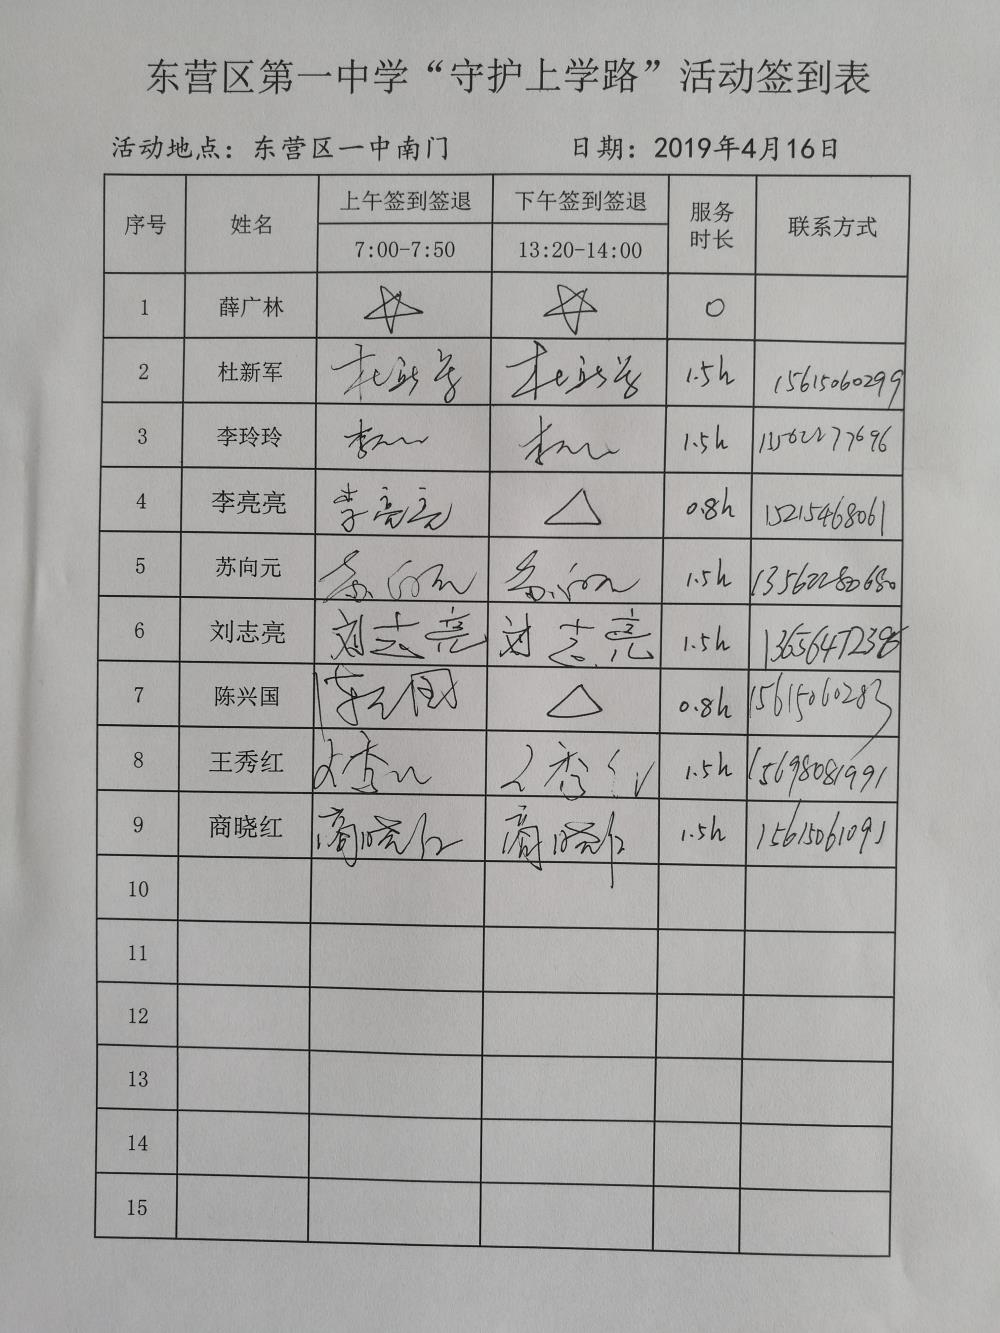 东营区第一中学“守护上学路”活动签到表
活动地点：东营区一中南门 日期：2019年4月16日
序号 姓名 上午签到签退 下午签到签退 服务时长 联系方式
7:00-7:50 13:20-14:00
1 薛广林 ☆ ☆ 0
2 杜新军 杜新军 杜新军 1.5h 15615060299
3 李玲玲 李玲玲 李玲玲 1.5h
4 李亮亮 李亮亮 △ 0.8h 15215468061
5 苏向元 苏向元 苏向元 1.5h 13562280680
6 刘志亮 刘志亮 刘志亮 1.5h
7 陈兴国 陈兴国 △ 0.8h 15615060283
8 王秀红 王秀红 王秀红 1.5h 15698081991
9 商晓红 商晓红 商晓红 1.5h 15615061091
10
11
12
13
14
15